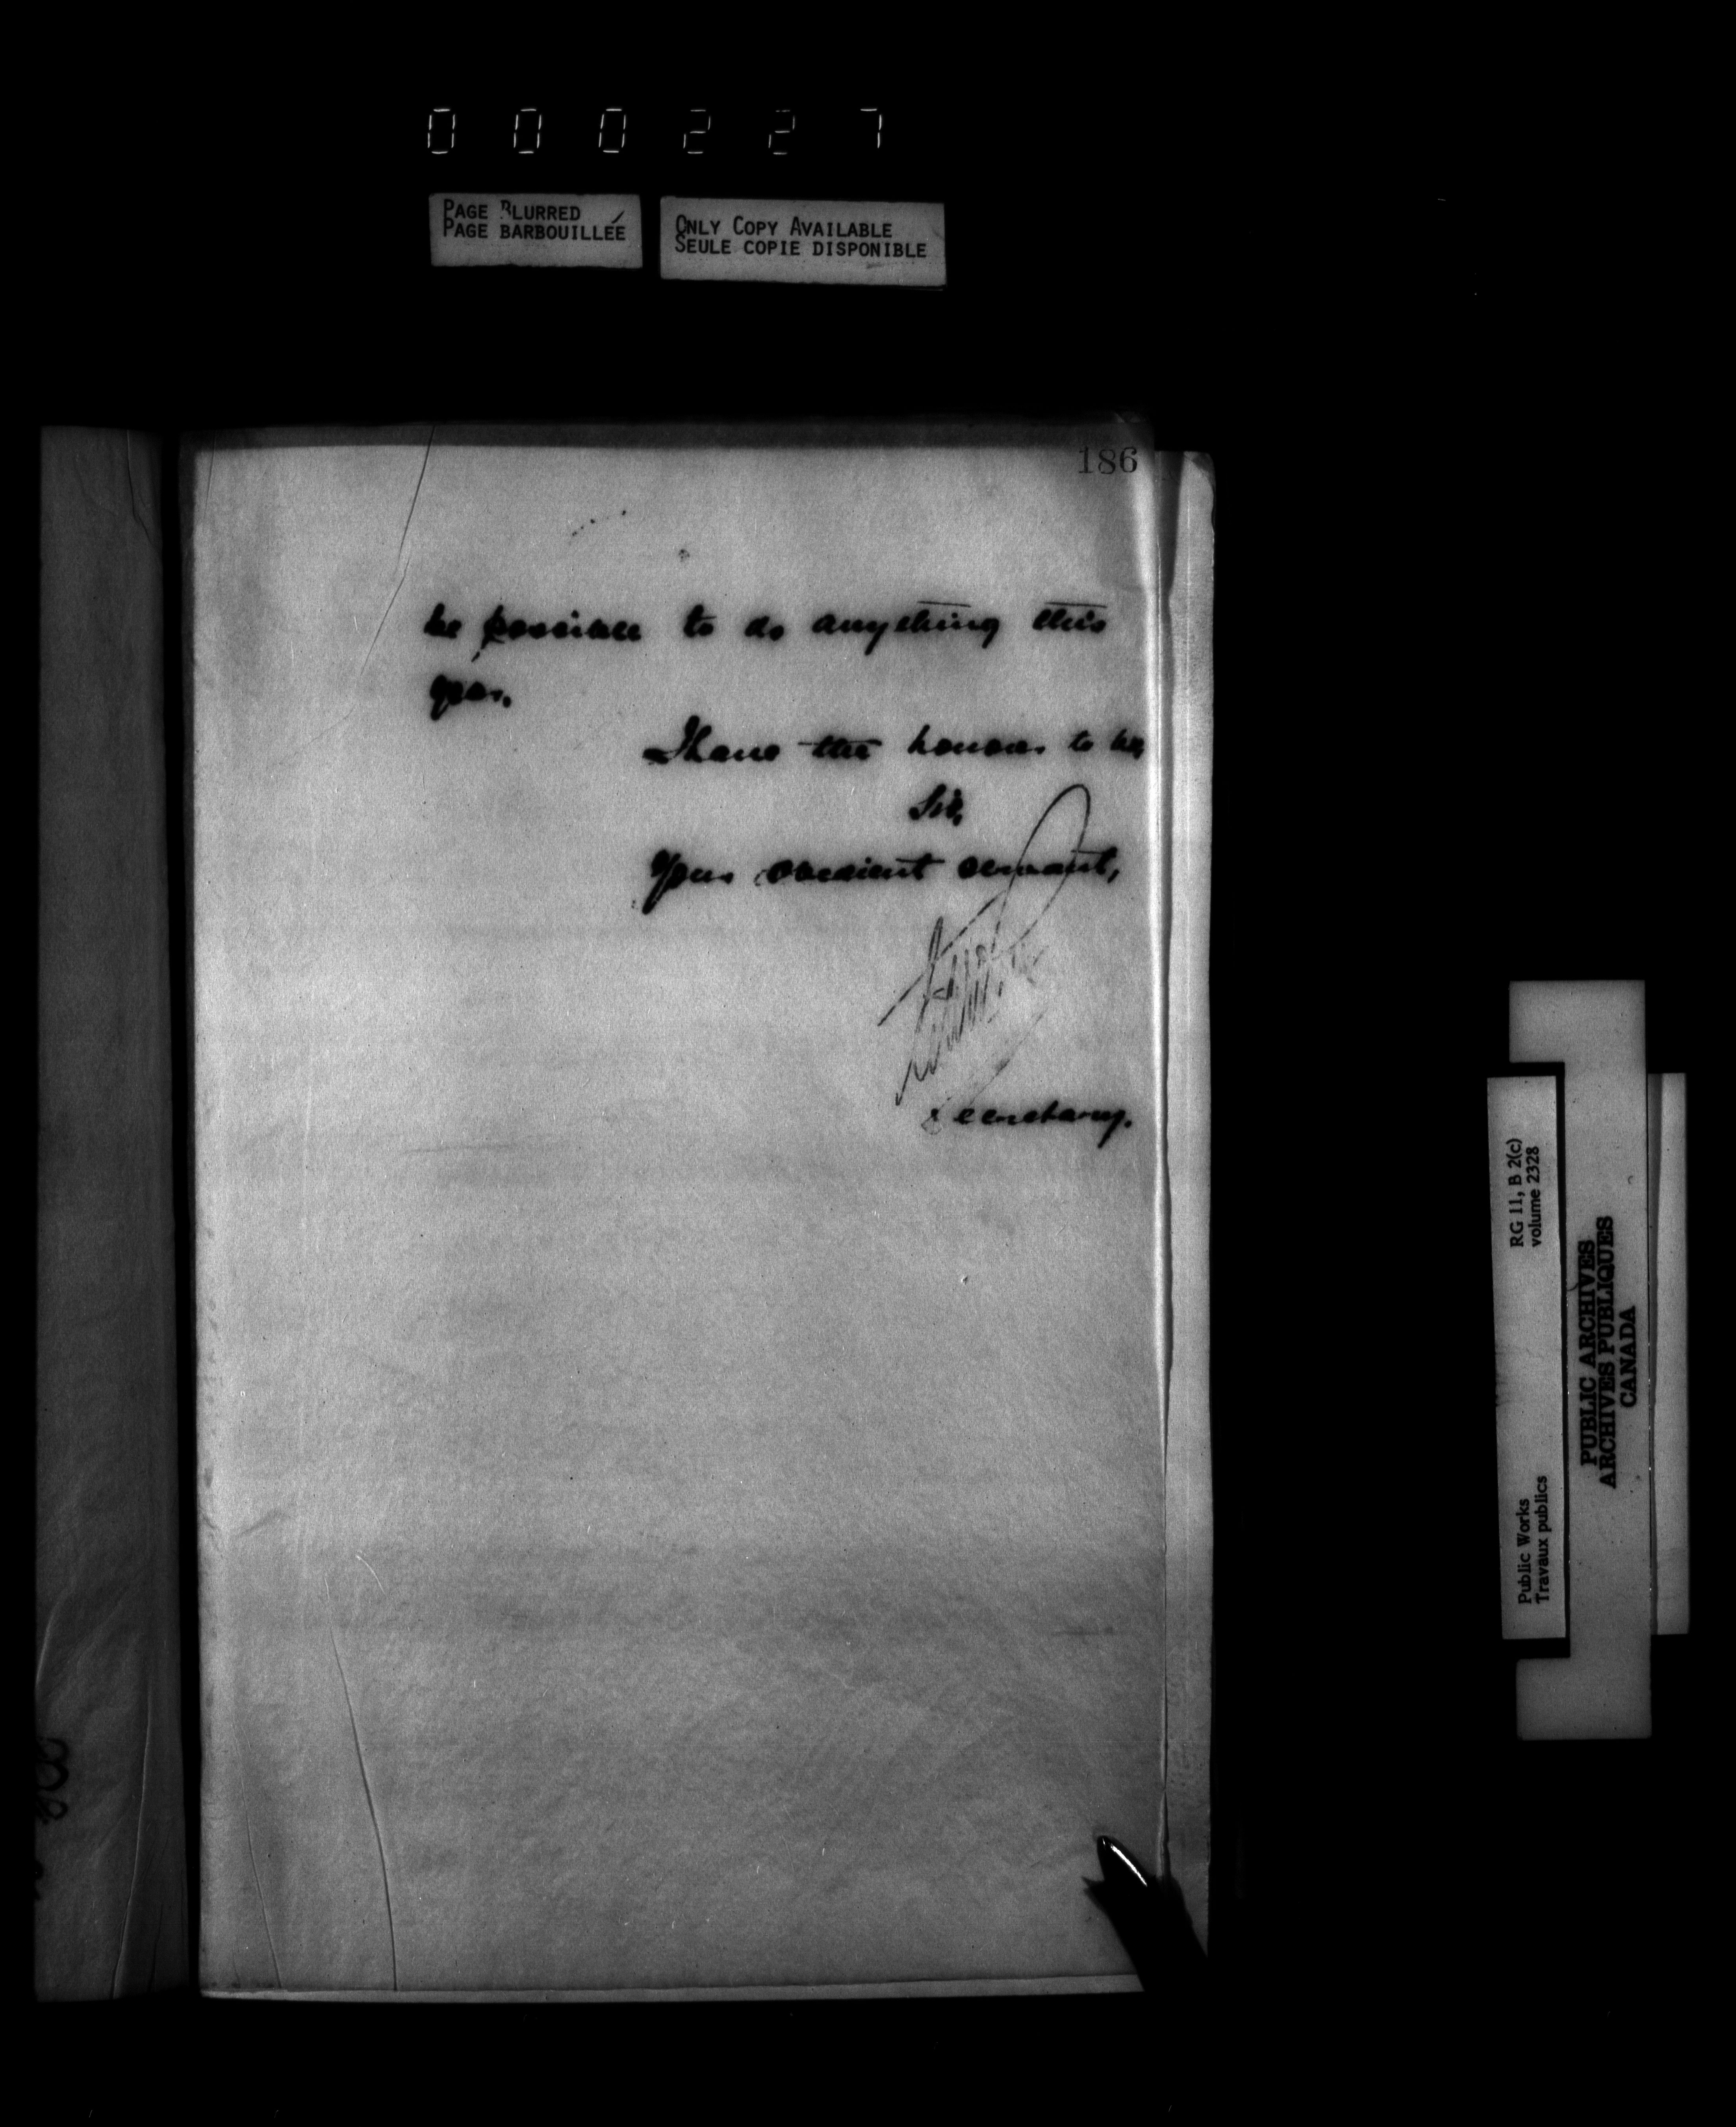 000227
PAGE BLURRED
PAGE BARBOUILLÉE
ONLY COPY AVAILABLE
SEULE COPIE DISPONIBLE
186
be possible to do anything this
year.
I have the honour to be,
Sir,
Your obedient servant,
Secretary.
RG 11, B 2(c)
volume 2328
Public Works
Travaux publics
PUBLIC ARCHIVES
ARCHIVES PUBLIQUES
CANADA